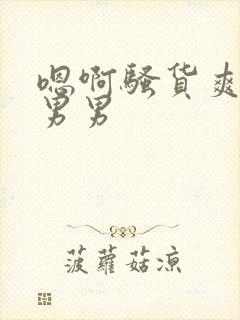 嗯啊骚货爽
男男
菠萝菇凉